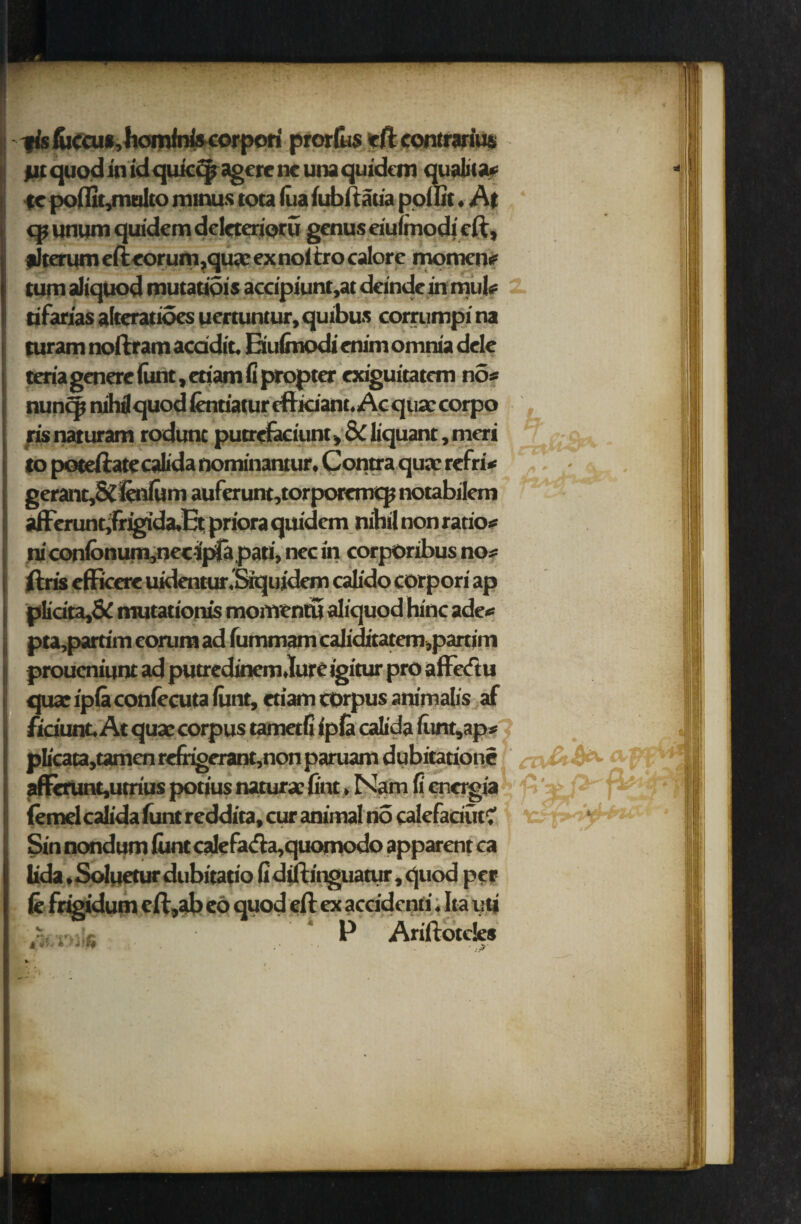 ris ſuccus, hominis corpori prorſus eſt contrarius
ut quod in id quicꝗ agere ne una quidem qualita⸗
te poſſit,multo minus tota ſua ſubſtãtia poſſit. At
ꝗ unum quidem deleteriorũ genus eiuſmodi eſt,
alterum eſt eorum,quæ ex noſtro calore momen⸗
tum aliquod mutatiõis accipiunt,at deinde in mul⸗
tifarias alteratiões uertuntur, quibus corrumpi na
turam noſtram accidit. Eiuſmodi enim omnia dele
teria genere ſunt, etiam ſi propter exiguitatem nõ⸗
nunꝗ nihil quod ſentiatur efficiant. Ac quæ corpo
ris naturam rodunt putrefaciunt, & liquant, meri
to poteſtate calida nominantur. Contra quæ refri⸗
gerant,& ſenſum auferunt,torporemꝗ notabilem
afferunt,frigida. Et priora quidem nihil non ratio⸗
ni conſonum,nec ipſa pati, nec in corporibus no⸗
ſtris efficere uidentur. Siquidem calido corpori ap
plicita,& mutationis momentũ aliquod hinc ade⸗
pta,partim eorum ad ſummam caliditatem,partim
proueniunt ad putredinem. Iure igitur pro affectu
quæ ipſa conſecuta ſunt, etiam corpus animalis af
ficiunt. At quæ corpus tametſi ipſa calida ſunt,ap⸗
plicata,tamen refrigerant,non paruam dubitationẽ
afferunt,utrius potius naturæ ſint. Nam ſi energia
ſemel calida ſunt reddita, cur animal nõ calefaciũt?
Sin nondum ſunt calefacta,quomodo apparent ca
lida. Soluetur dubitatio ſi diſtinguatur, quod per
ſe frigidum eſt,ab eo quod eſt ex accidenti. Ita uti
P Ariſtoteles